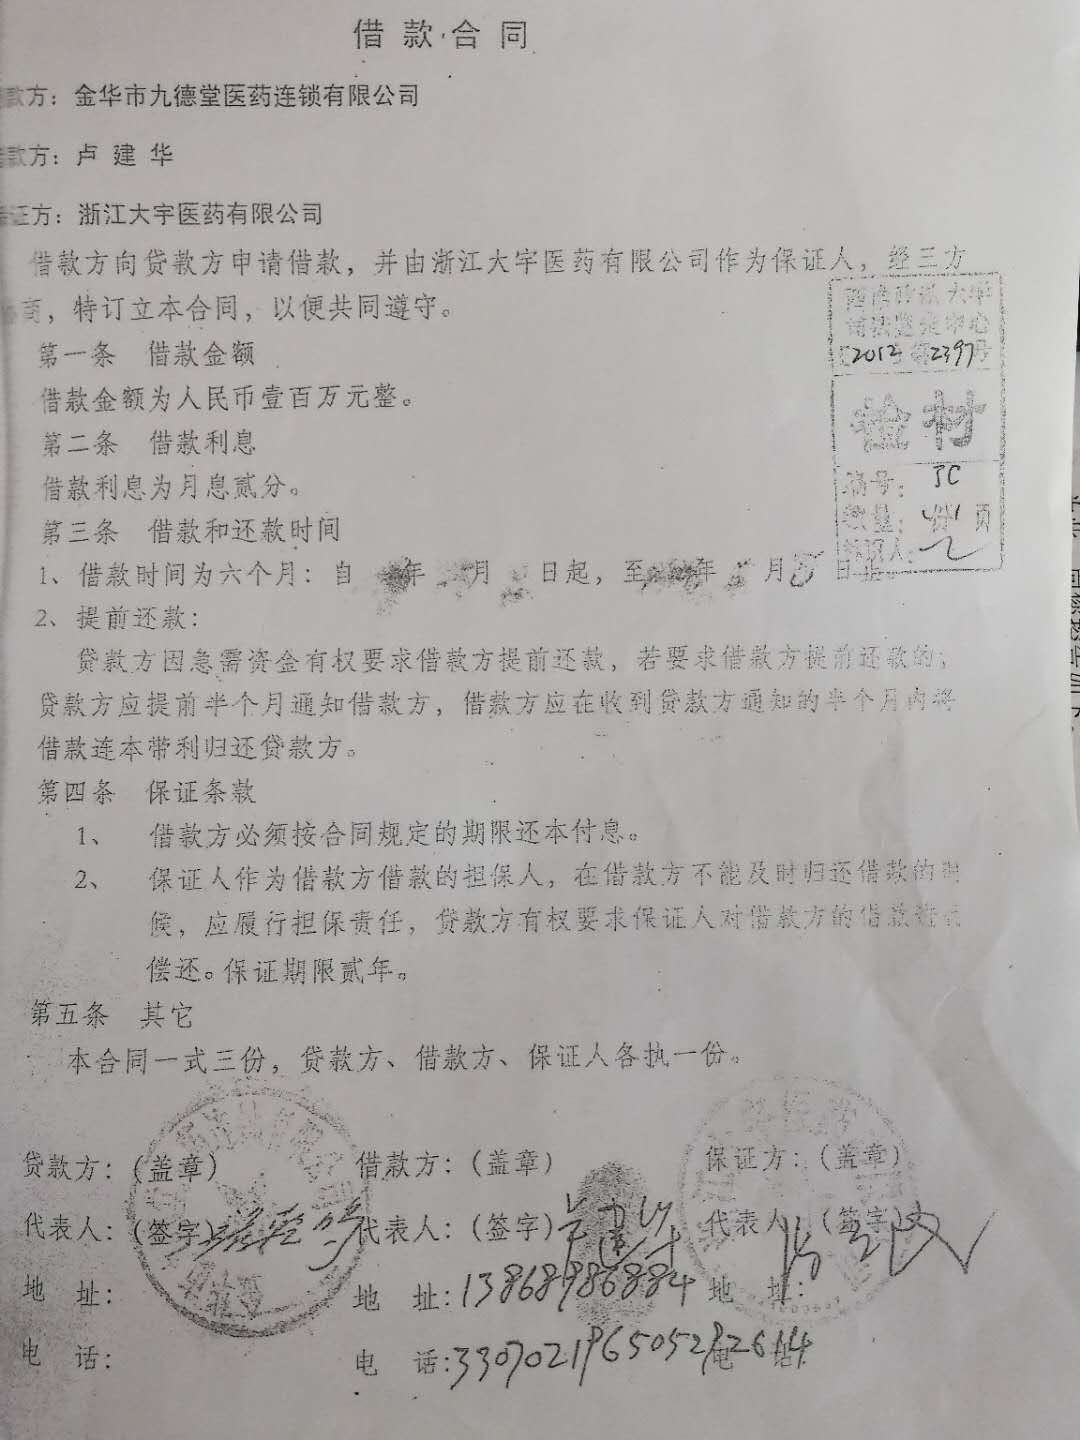 借款合同
款方：金华市九德堂医药连锁有限公司
款方：卢建华
证方：浙江大宇医药有限公司
借款方向贷款方申请借款，并由浙江大宇医药有限公司作为保证人，经三方
商，特订立本合同，以便共同遵守。
第一条 借款金额
借款金额为人民币壹百万元整。
第二条 借款利息
借款利息为月息贰分。
第三条 借款和还款时间
1、借款时间为六个月：自 年 月 日起，至 年 月 日
2、提前还款：
贷款方因急需资金有权要求借款方提前还款，若要求借款方提前还款的，
贷款方应提前半个月通知借款方，借款方应在收到贷款方通知的半个月内将
借款连本带利归还贷款方。
第四条 保证条款
1、 借款方必须按合同规定的期限还本付息。
2、 保证人作为借款方借款的担保人，在借款方不能及时归还借款的时
候，应履行担保责任，贷款方有权要求保证人对借款方的借款进行
偿还。保证期限贰年。
第五条 其它
本合同一式三份，贷款方、借款方、保证人各执一份。
西南政法大学
司法鉴定中心
[2012] 第2397号
检材
编号：JC
数量：1页
贷款方：（盖章） 借款方：（盖章） 保证方：（盖章）
代表人：（签字） 代表人：（签字） 代表人：（签字）
地 址： 地 址：13868986884 地 址：
电 话： 电 话：330702196505292614 电 话：